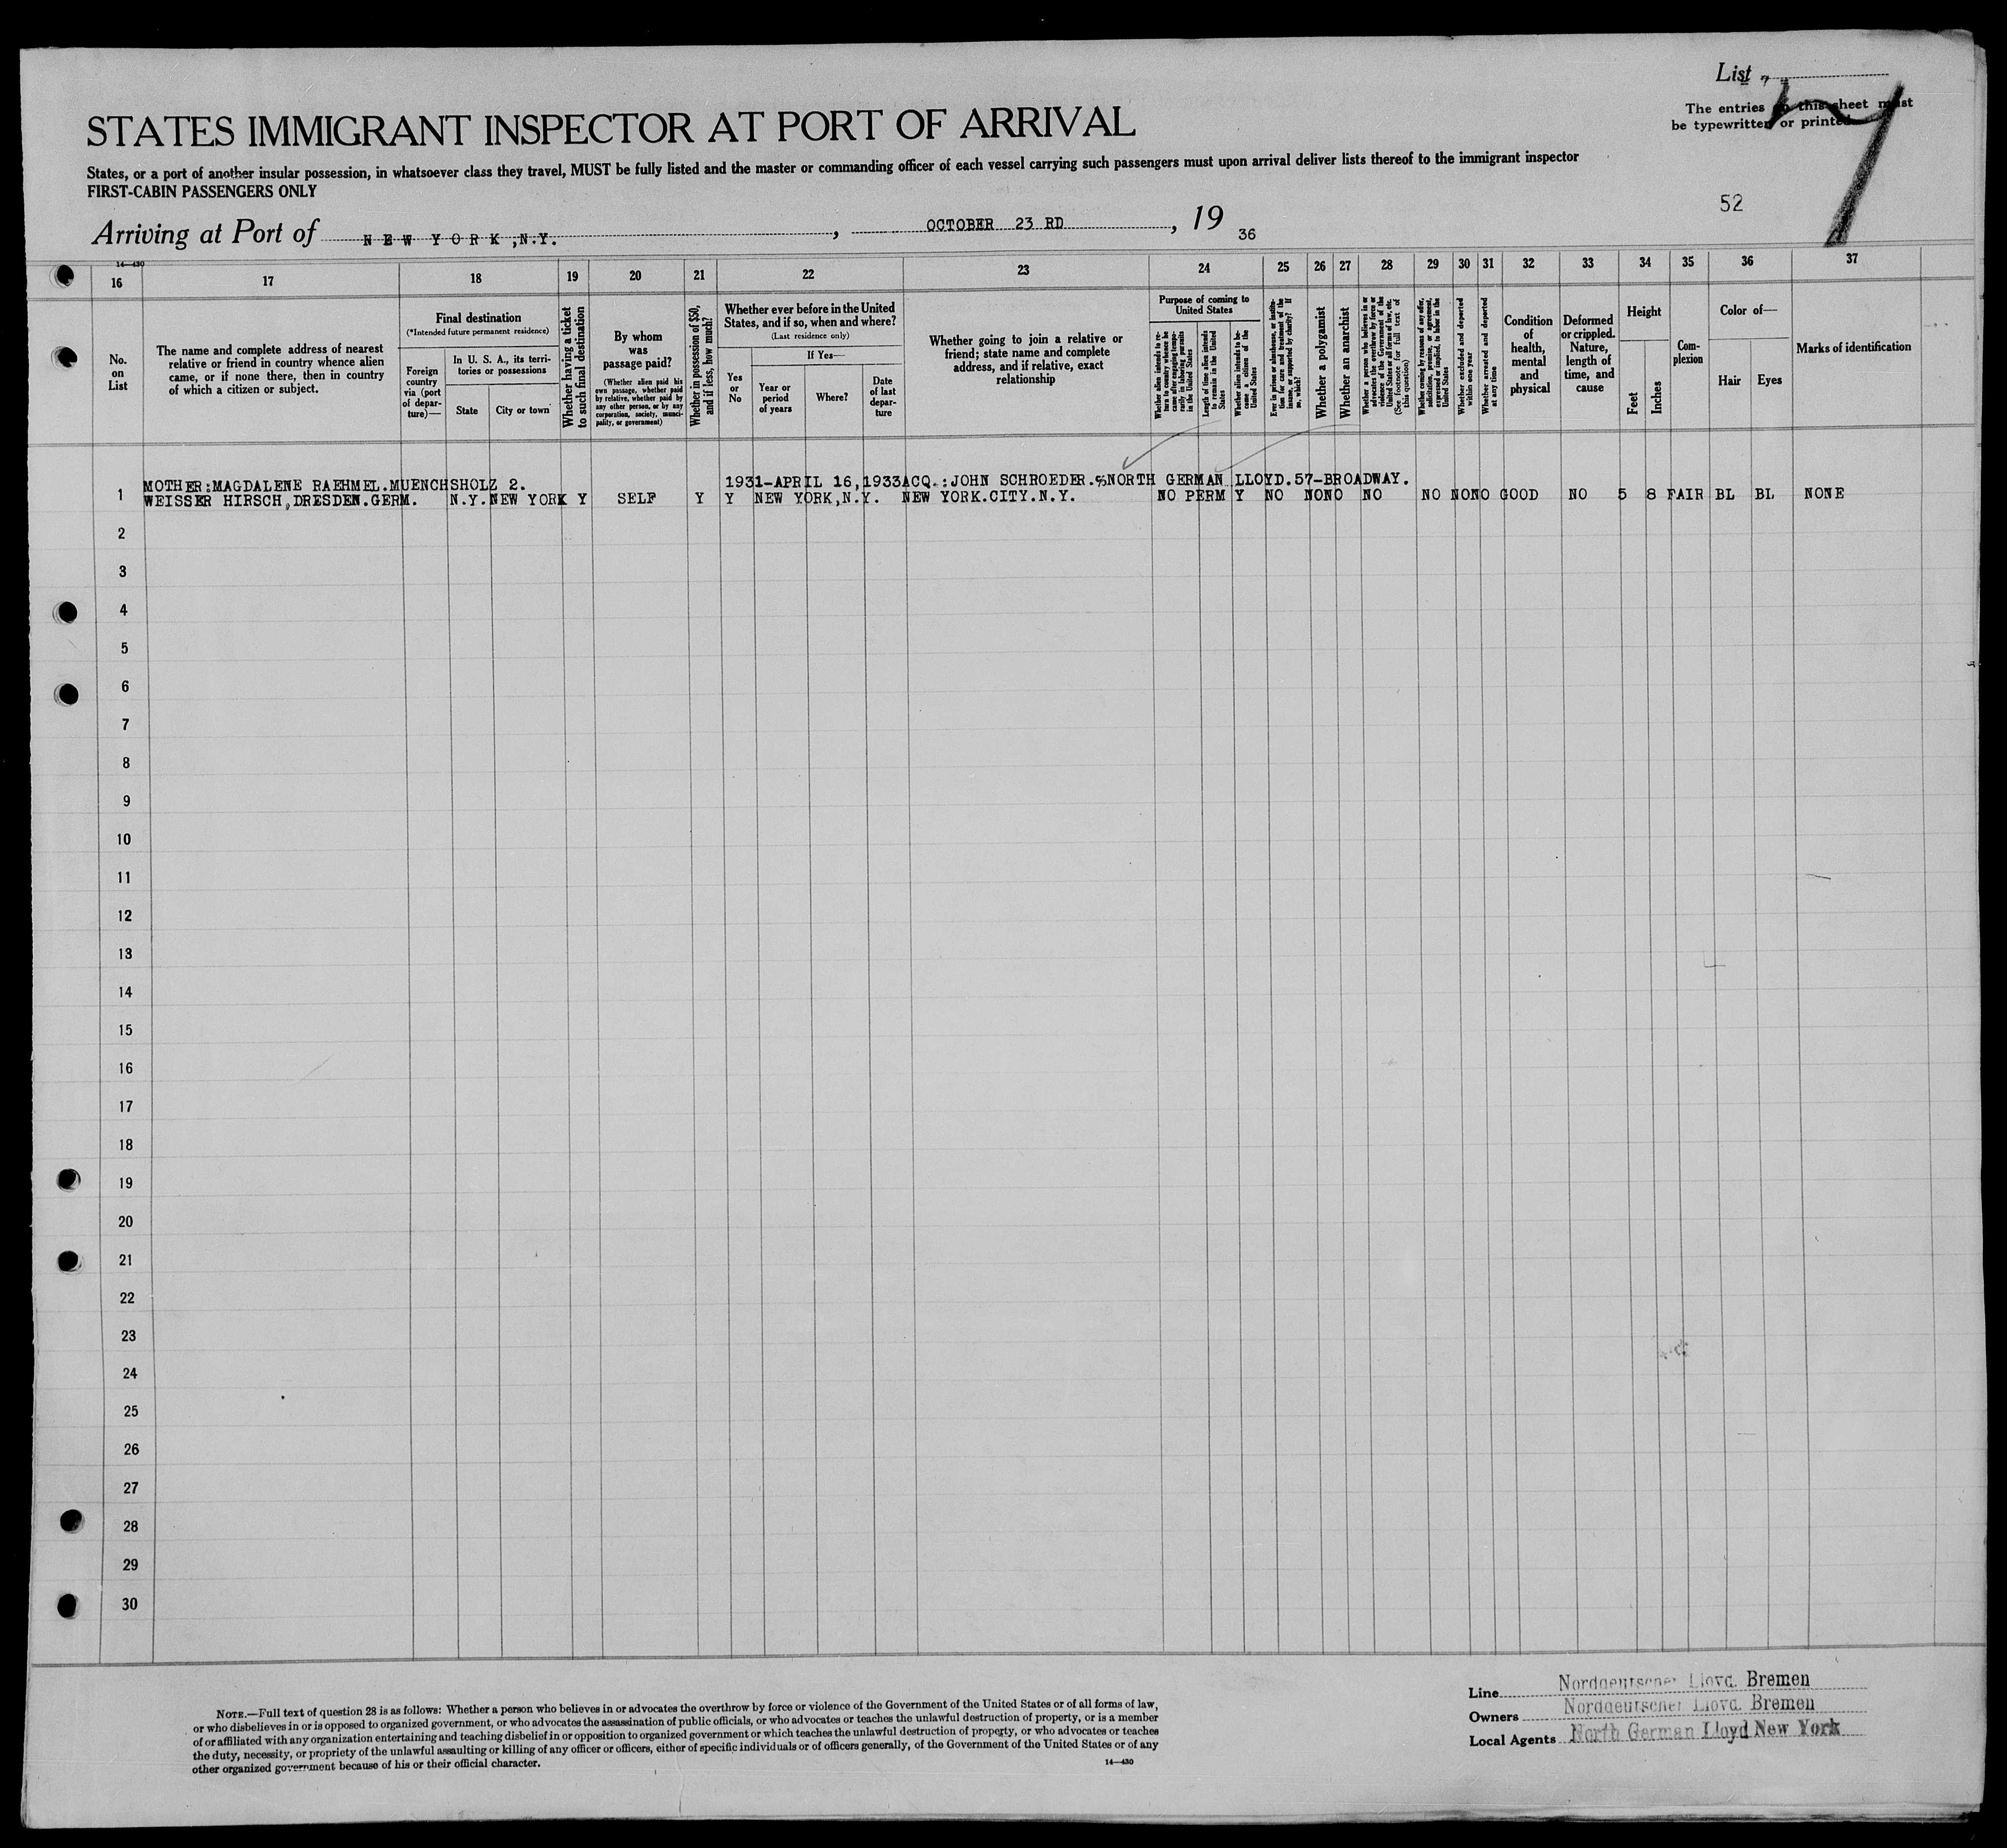 List
The entries on this sheet must
be typewritten or printed
STATES IMMIGRANT INSPECTOR AT PORT OF ARRIVAL
States, or a port of another insular possession, in whatsoever class they travel, MUST be fully listed and the master or commanding officer of each vessel carrying such passengers must upon arrival deliver lists thereof to the immigrant inspector
FIRST-CABIN PASSENGERS ONLY
52
Arriving at Port of NEW YORK, N.Y., OCTOBER 23 RD, 1936
14-430
16 17 18 19 20 21 22 23 24 25 26 27 28 29 30 31 32 33 34 35 36 37
No. on List
The name and complete address of nearest relative or friend in country whence alien came, or if none there, then in country of which a citizen or subject.
Final destination
(*Intended future permanent residence)
Foreign country via (port of departure)—
In U. S. A., its territories or possessions
State
City or town
Whether having a ticket to such final destination
By whom was passage paid?
(Whether alien paid his own passage, whether paid by relative, whether paid by any other person, or by any corporation, society, municipality, or government)
Whether in possession of $50, and if less, how much?
Whether ever before in the United States, and if so, when and where?
(Last residence only)
Yes or No
If Yes—
Year or period of years
Where?
Date of last departure
Whether going to join a relative or friend; state name and complete address, and if relative, exact relationship
Purpose of coming to United States
Whether alien intends to return to country whence he came after engaging temporarily in laboring pursuits in the United States
Length of time alien intends to remain in the United States
Whether alien intends to become a citizen of the United States
Ever in prison or almshouse, or institution for care and treatment of the insane, or supported by charity? If so, which?
Whether a polygamist
Whether an anarchist
Whether a person who believes in or advocates the overthrow by force or violence of the Government of the United States or all forms of law, etc. (See footnote for full text of this question)
Whether coming by reasons of any offer, solicitation, promise, or agreement, expressed or implied, to labor in the United States
Whether excluded and deported within one year
Whether arrested and deported at any time
Condition of health, mental and physical
Deformed or crippled. Nature, length of time, and cause
Height
Feet
Inches
Complexion
Color of—
Hair
Eyes
Marks of identification
MOTHER:MAGDALENE RAEHMEL.MUENCHSHOLZ 2. 1931-APRIL 16,1933 ACQ.:JOHN SCHROEDER.%NORTH GERMAN LLOYD.57-BROADWAY.
1 WEISSER HIRSCH,DRESDEN.GERM. N.Y. NEW YORK Y SELF Y Y NEW YORK,N.Y. NEW YORK.CITY.N.Y. NO PERM Y NO NO NO NO NO NO NO GOOD NO 5 8 FAIR BL BL NONE
2
3
4
5
6
7
8
9
10
11
12
13
14
15
16
17
18
19
20
21
22
23
24
25
26
27
28
29
30
NOTE.—Full text of question 28 is as follows: Whether a person who believes in or advocates the overthrow by force or violence of the Government of the United States or of all forms of law,
or who disbelieves in or is opposed to organized government, or who advocates the assassination of public officials, or who advocates or teaches the unlawful destruction of property, or is a member
of or affiliated with any organization entertaining and teaching disbelief in or opposition to organized government or which teaches the unlawful destruction of property, or who advocates or teaches
the duty, necessity, or propriety of the unlawful assaulting or killing of any officer or officers, either of specific individuals or of officers generally, of the Government of the United States or of any
other organized government because of his or their official character.
14—430
Line Norddeutscher Lloyd. Bremen
Owners Norddeutscher Lloyd. Bremen
Local Agents North German Lloyd New York